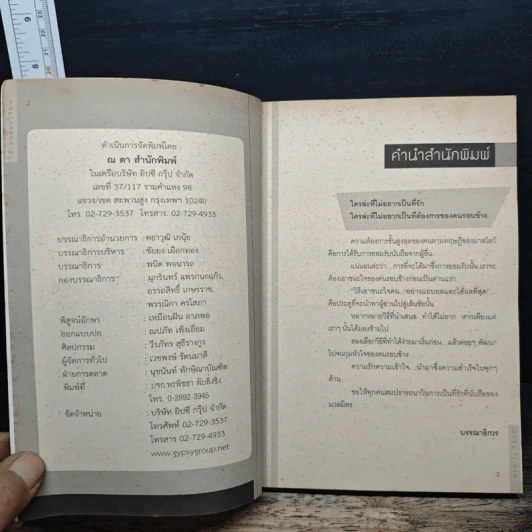 2
ดำเนินการจัดพิมพ์โดย :
ณ ดา สำนักพิมพ์
ในเครือบริษัท ยิปซี กรุ๊ป จำกัด
เลขที่ 37/117 รามคำแหง 98
แขวง/เขต สะพานสูง กรุงเทพฯ 10240
โทร. 02-729-3537 โทรสาร. 02-729-4933
บรรณาธิการอำนวยการ : คธาวุฒิ เกนุ้ย
บรรณาธิการบริหาร : ชัยยง เผือกทอง
บรรณาธิการ : พนิต พจนารถ
กองบรรณาธิการ : มุกรินทร์ แพรกนกแก้ว,
อรรถสิทธิ์ เกษรราช,
พรรณิกา ครโสภา
พิสูจน์อักษร : เหมือนฝัน
ออกแบบปก : ณปภัท เพ็งเอี่ยม
ศิลปกรรม : วีรภัทร สุธีรางกูร
ผู้จัดการทั่วไป : เวชพงษ์ รัตนมาลี
ฝ่ายการตลาด : นุชนันท์ ทักษิณาบัณฑิต
พิมพ์ที่ : บจก.พรพิชชา พับลิ่งชิ่ง
โทร. 0-2892-3945
จัดจำหน่าย : บริษัท ยิปซี กรุ๊ป จำกัด
โทรศัพท์ 02-729-3537
โทรสาร 02-729-4933
www.gypsygroup.net
คำนำสำนักพิมพ์
ใครล่ะที่ไม่อยากเป็นที่รัก
ใครล่ะที่ไม่อยากเป็นที่ต้องการของคนรอบข้าง
ความต้องการขั้นสูงสุดของคนตามทฤษฎีของมาสโลว์
คือการได้รับการยอมรับนับถือจากผู้อื่น
แน่นอนล่ะว่า...การจะได้มาซึ่งการยอมรับนั้น เราจะ
ต้องเอาชนะใจของคนรอบข้างก่อนเป็นด่านแรก
"วิธีเอาชนะใจคน...อย่างแยบยลและได้ผลที่สุด"
คือประตูที่จะนำพาผู้อ่านไปสู่เส้นชัยนั้น
หลากหลายวิธีที่นำเสนอ ทำได้ไม่ยาก หากเพียงแต่
เราๆ นั้นได้มองข้ามไป
ลองเลือกวิธีที่ทำได้ง่ายมาเริ่มก่อน แล้วค่อยๆ พัฒนา
ไปจนกุมหัวใจของคนรอบข้าง
ความรักความเข้าใจ...นำมาซึ่งความสำเร็จในทุกๆ
ด้าน
ขอให้ทุกคนสมปรารถนาในการเป็นที่รักที่นับถือของ
มวลมิตร
บรรณาธิการ
3